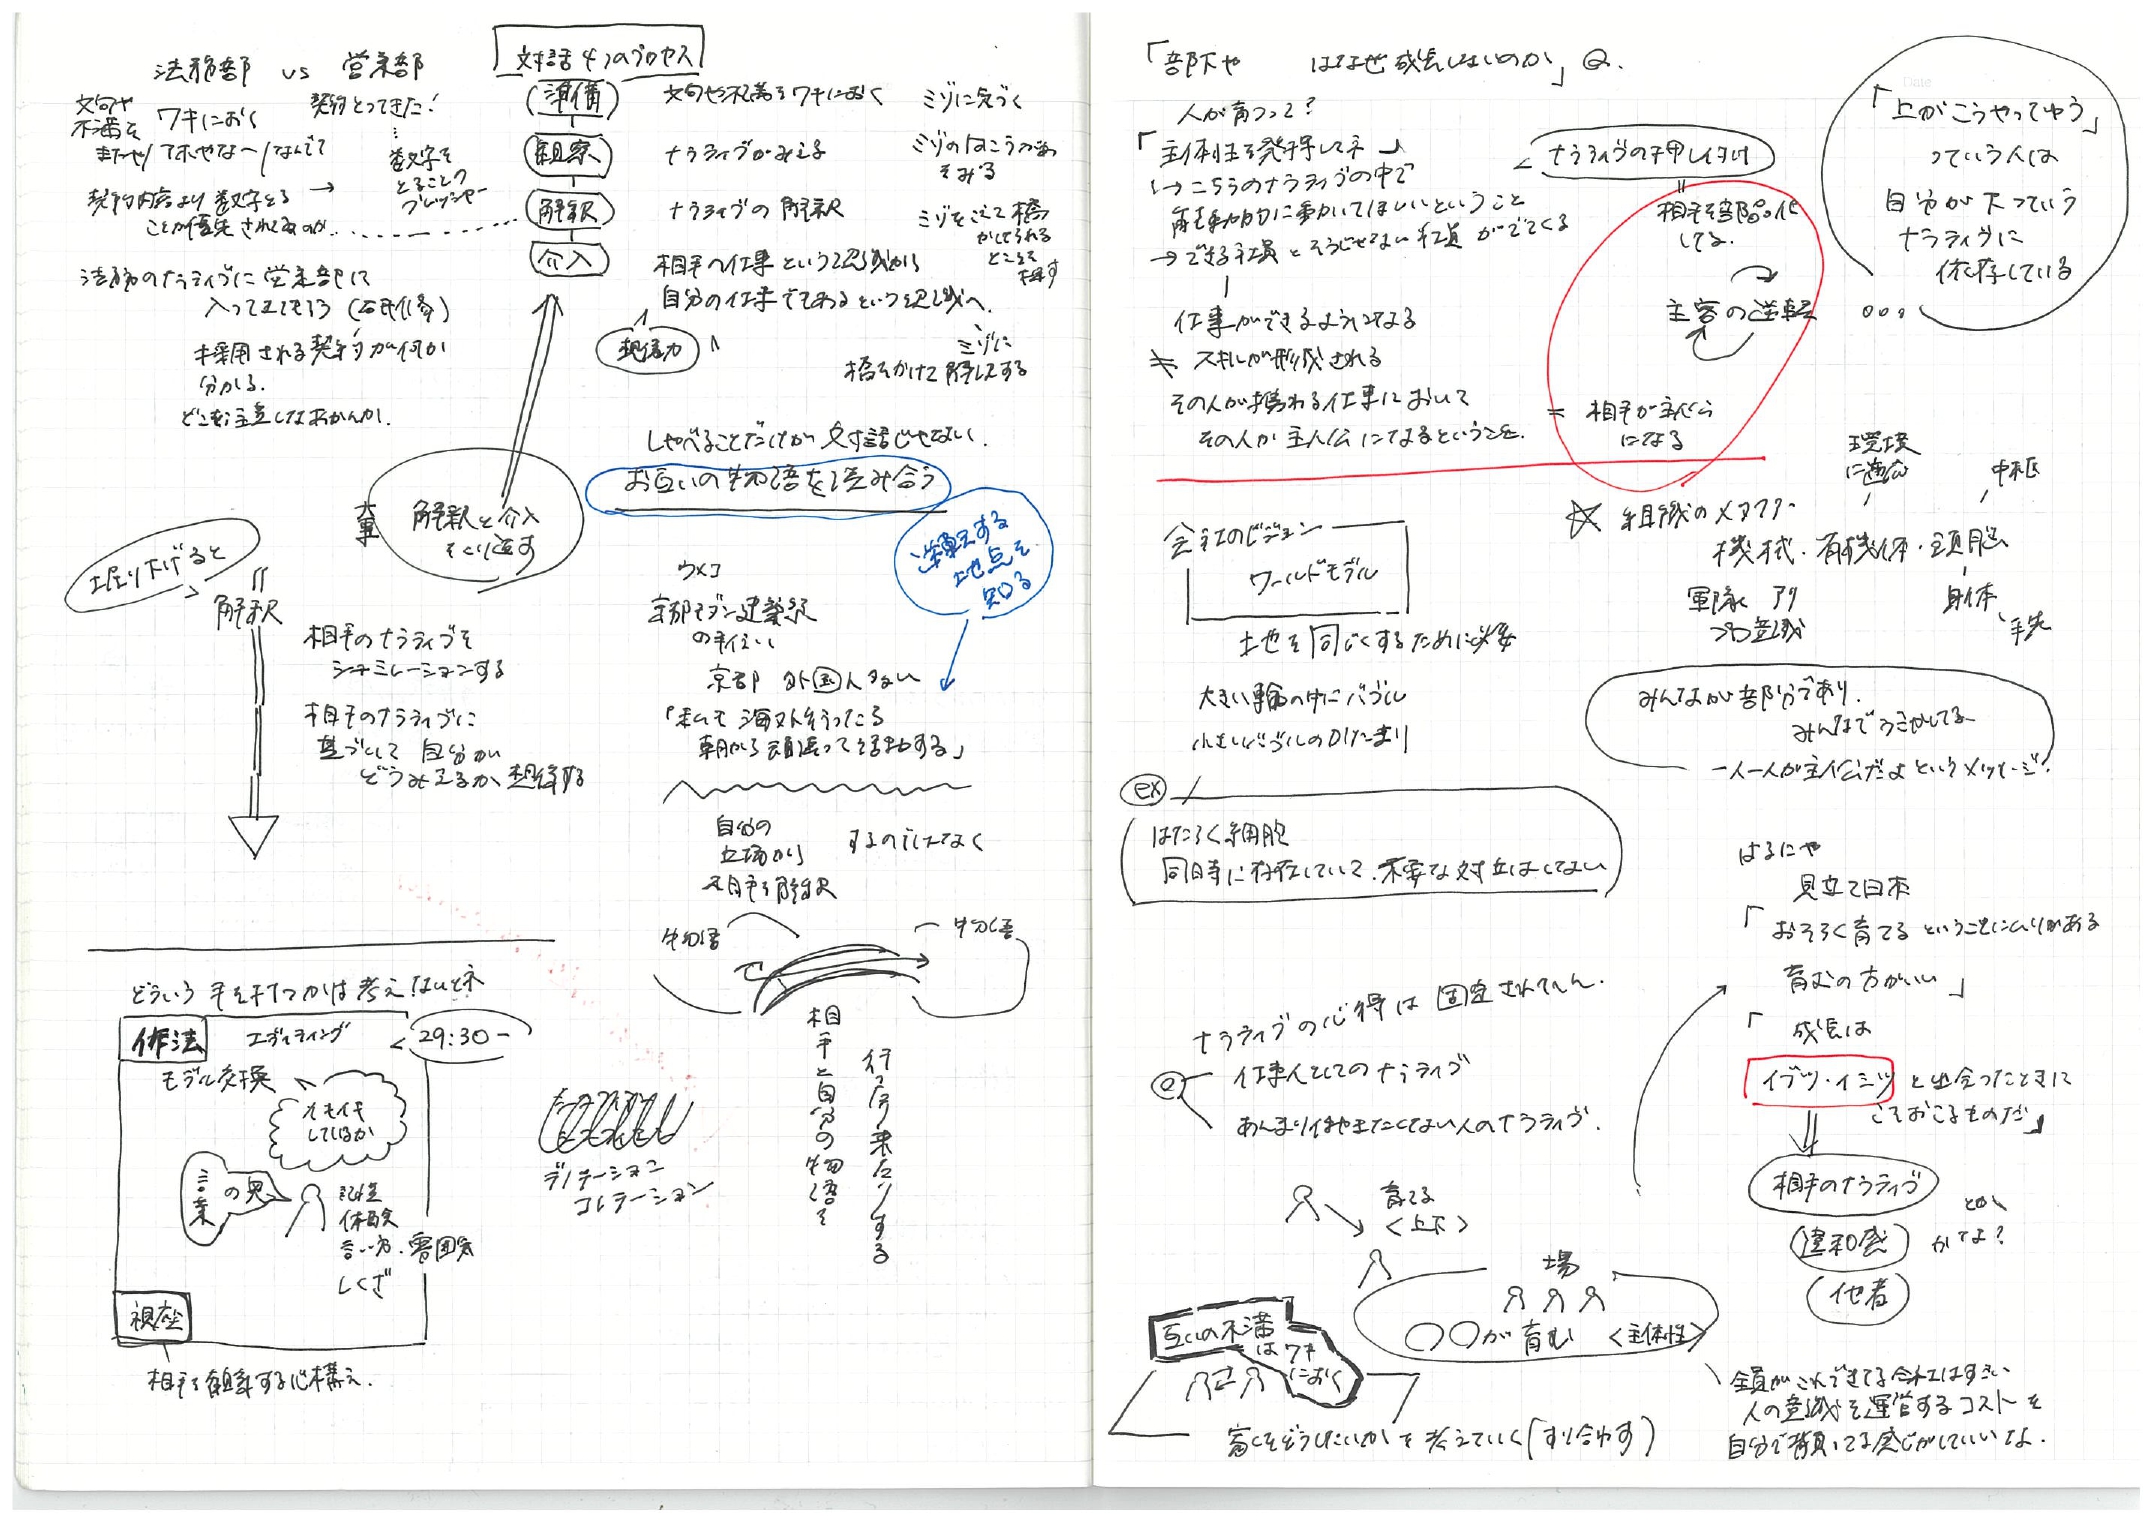 法務部 vs 営業部
文句や
不満を ワキにおく
またや/アホやなー/なんでて
契約とってきた!
⋮
数字を
とることの
プレッシャー
契約内容より数字とる →
ことが優先されてるのか
法務のナラティブに営業部に
入ってきてもらう(研修)
採用される契約が何か
分かる.
どこを注意しなあかんか.
対話 4つのプロセス
準備 文句や不満をワキにおく ミゾに気づく
観察 ナラティブがみえる ミゾのむこうがわ
をみる
解釈 ナラティブの解釈 ミゾをこえて橋
かけられる
ところを
探す
介入 相手の仕事という認識から
自分の仕事でもあるという認識へ.
想像力
ミゾに
橋をかけて解しする
しゃべることだけが対話じゃない.
お互いの物語を読み合う
逆転する
地点を
知る
大事
解釈と介入
をくり返す
掘り下げると
=
解釈
相手のナラティブを
シュミレーションする
相手のナラティブに
基づいて自分が
どうみえるか想像する
ウメコ
京都モダン建築祭
の手伝い
京都 外国人多い
「私も海外行ったら
朝から頑張って活動する」
自分の
立場から
相手を解釈 するのではなく
物語
物語
相手と自分の物語を
行ったり来たりする
どういう手を打つかは考えないとネ
作法 エディティング < 29:30-
モデル交換
イキイキ
しているか
言葉 の奥
記憶
体験
言い方.雰囲気
しぐさ
視座
相手を観察する心構え.
デノテーション
コノテーション
「部下や はなぜ成長しないのか」Q.
人が育つって?
「主体性を発揮してネ」
↳こちらのナラティブの中で
能動的に動いてほしいということ
→できる社員とそうじゃない社員がでてくる
仕事ができるようになる
≠ スキルが形成される
その人が携わる仕事において
その人が主人公になるということ.
< ナラティブの押し付け
=
相手を部品化
してる.
主客の逆転
= 相手が主人公
になる
「上がこうやってゆう」
っていう人は
自分が下っていう
ナラティブに
依存している
会社のビジョン
ワールドモデル
土地を同じくするために必要
大きい輪の中にバブル
小さいバブルのかたまり
☆ 組織のメタファー
環境
に適応
中枢
機械・有機体・頭脳
軍隊 アリ
プロ意識
身体
手先
みんなが部分であり.
みんなでうごかしてる
一人一人が主人公だよというメッセージ!
ex
はたらく細胞
同時に存在していて.不要な対立はしてない
ナラティブの心得は固定されてへん.
e 仕事人としてのナラティブ
あんまり仕事したくない人のナラティブ.
はるにや
見立て日本
「おそらく育てるということにムリがある
育むの方がいい」
「成長は
イブツ・イミツ と出会ったときに
こそおこるものだ」
相手のナラティブ とか
違和感 かな?
他者
育てる
<上下>
場
〇〇が育む <主体性>
互いの不満
はワキ
におく
をどうしたいかを考えていく(すり合わす)
全員がこれできてる会社はすごい
人の意識を運営するコストを
自分で背負ってる感じがしていいな.